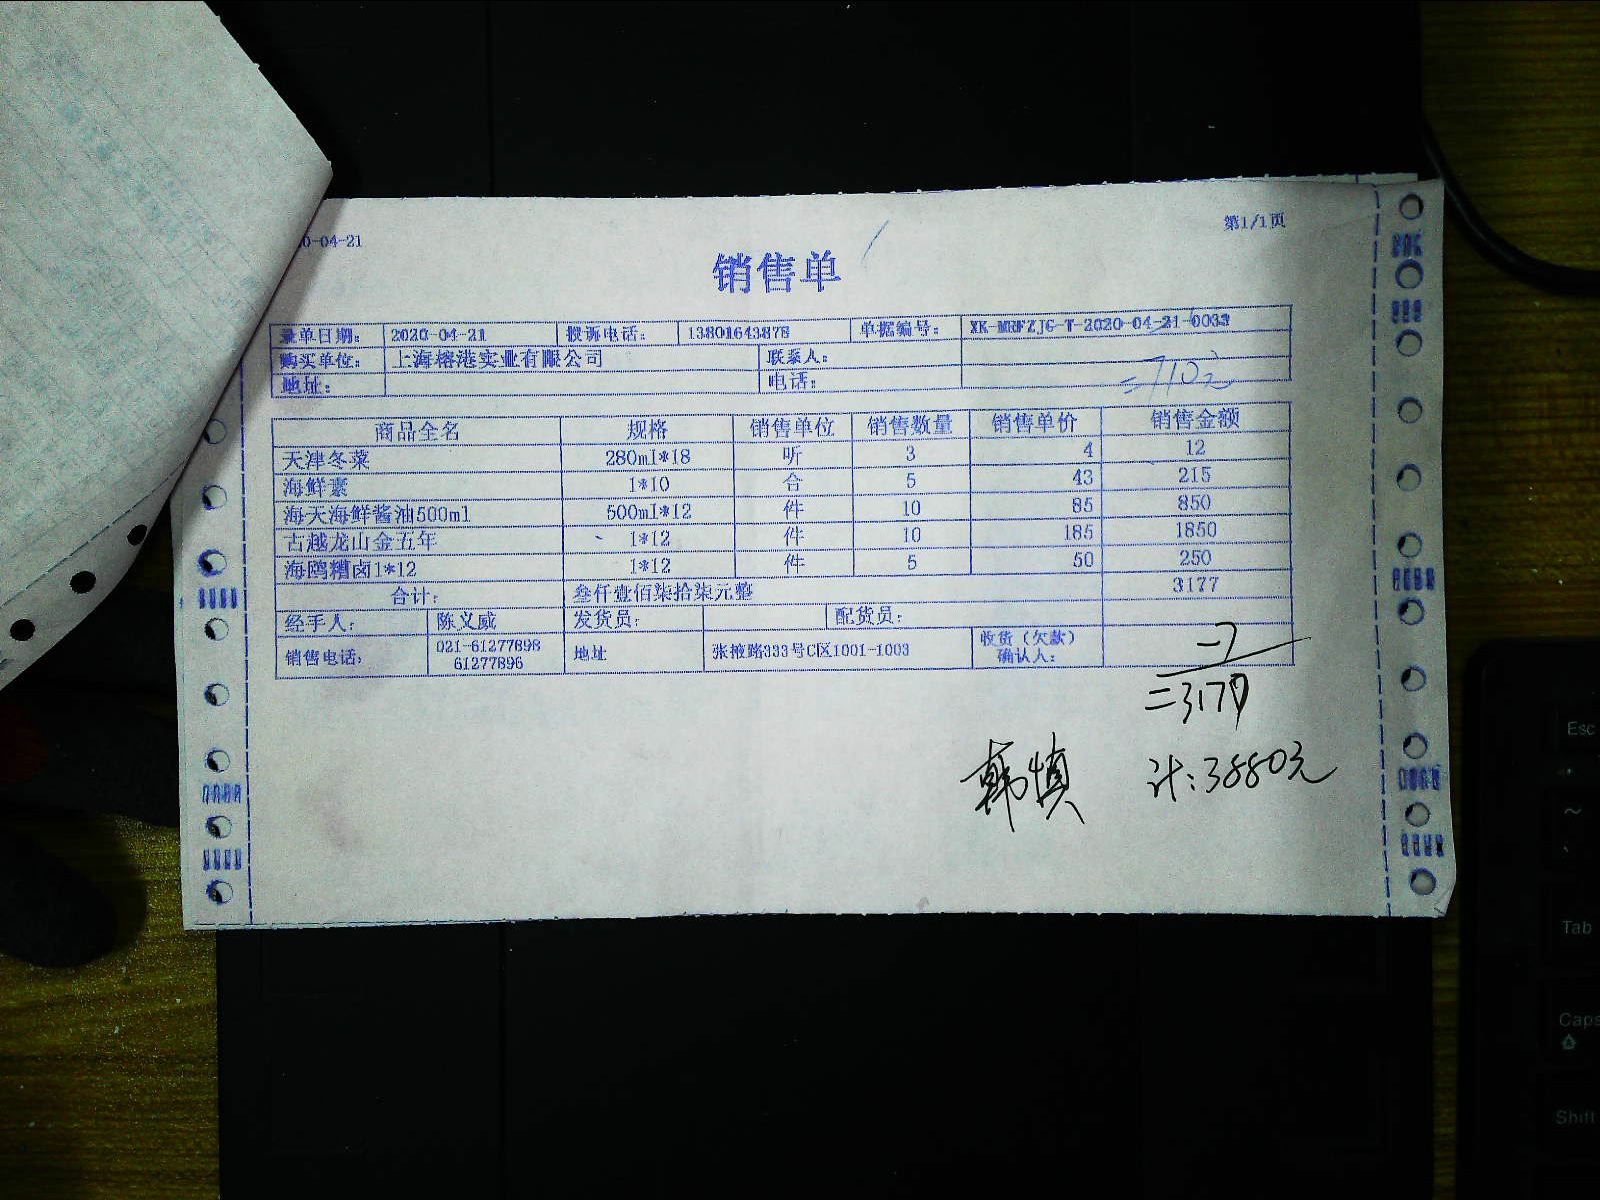 0-04-21
第1/1页
销售单
录单日期： 2020-04-21 投诉电话： 13801643878 单据编号： XK-MRFZJG-T-2020-04-21-0033
购买单位： 上海榕港实业有限公司 联系人：
地址： 电话：
=710元
商品全名 规格 销售单位 销售数量 销售单价 销售金额
天津冬菜 280ml*18 听 3 4 12
海鲜素 1*10 合 5 43 215
海天海鲜酱油500ml 500ml*12 件 10 85 850
古越龙山金五年 1*12 件 10 185 1850
海鸥糟卤1*12 1*12 件 5 50 250
合计： 叁仟壹佰柒拾柒元整 3177
经手人： 陈义威 发货员： 配货员：
销售电话： 021-61277898 地址 张掖路333号C区1001-1003 收货（欠款）
61277896 确认人：
-7
=3170
韩慎 计:3880元
Esc
~
Tab
Caps
Shift